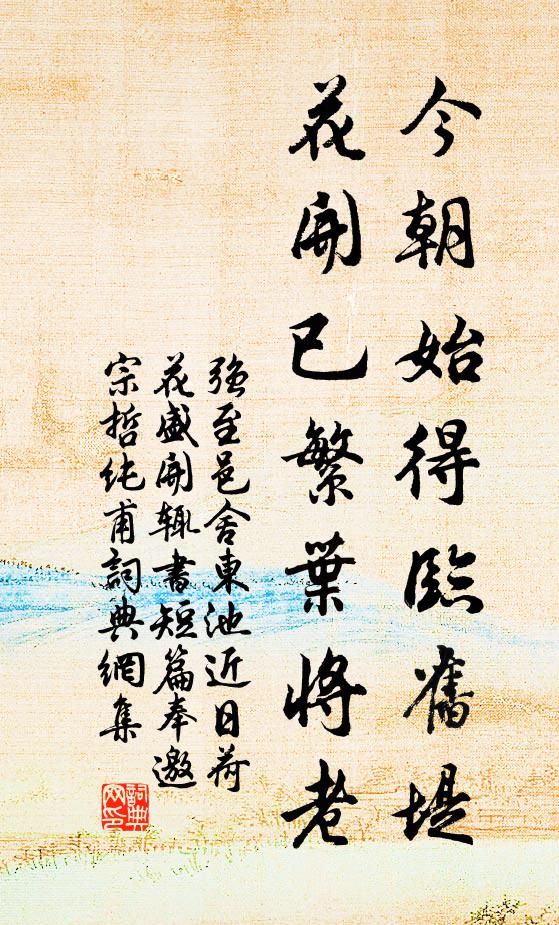 今朝始得臨舊堤
花開已繁葉將老
強至邑舍東池近日荷
花盛開輒書短篇奉邀
宗哲純甫詞典網集
詞典网印